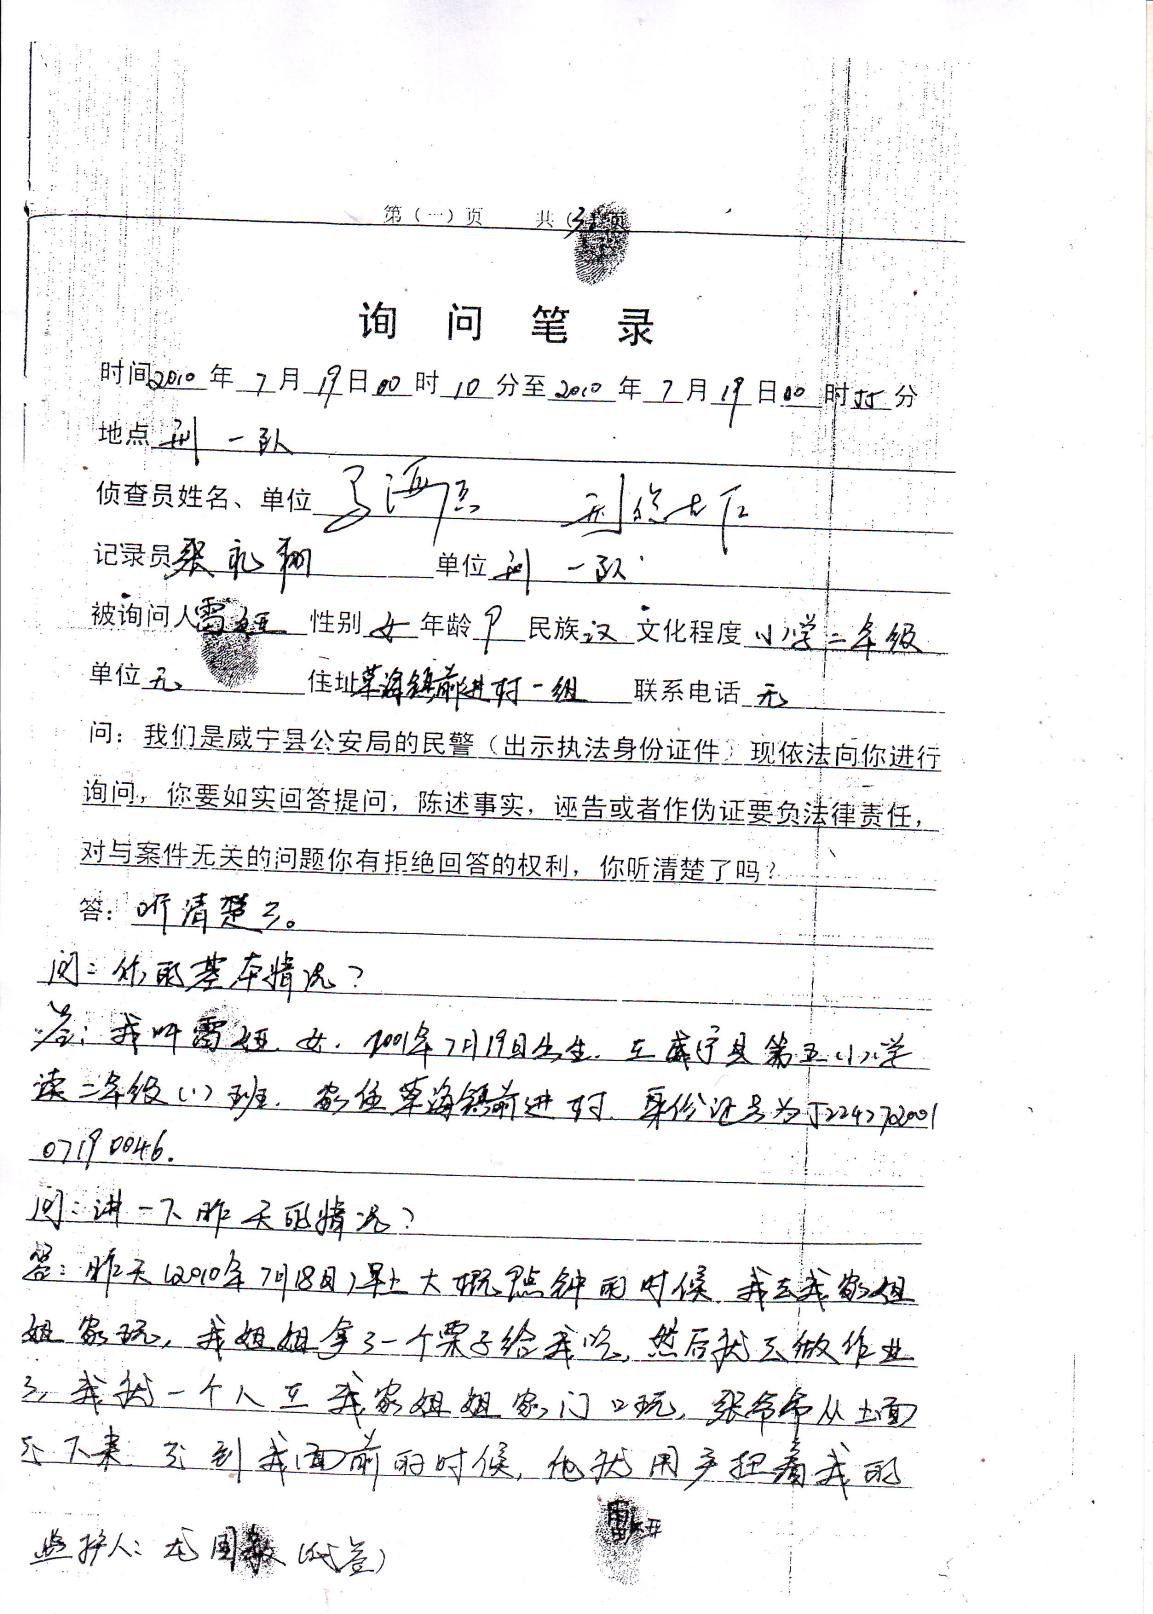 第(一)页 共(3)页
询问笔录
时间2010年7月19日00时10分至2010年7月19日00时55分
地点刑一队
侦查员姓名、单位
记录员张礼翔 单位刑一队
被询问人雷娅 性别女年龄9民族汉文化程度小学二年级
单位无 住址草海镇前进村一组 联系电话无
问:我们是威宁县公安局的民警(出示执法身份证件)现依法向你进行
询问,你要如实回答提问,陈述事实,诬告或者作伪证要负法律责任,
对与案件无关的问题你有拒绝回答的权利,你听清楚了吗?
答:听清楚了。
问:你的基本情况?
答:我叫雷娅、女、2001年7月19日出生、在威宁县第五小学
读二年级(1)班、家住草海镇前进村、身份证号为5224272001
07190046.
问:讲一下昨天的情况?
答:昨天(2010年7月18日)早上大概 点钟的时候、我去我家姐
姐家玩,我姐姐拿了一个栗子给我吃,然后就去做作业
了,我就一个人在我家姐姐家门口玩,张 从上面
走下来、走到我面前的时候,他就用手 着我的
监护人:龙国 (代签)
雷娅